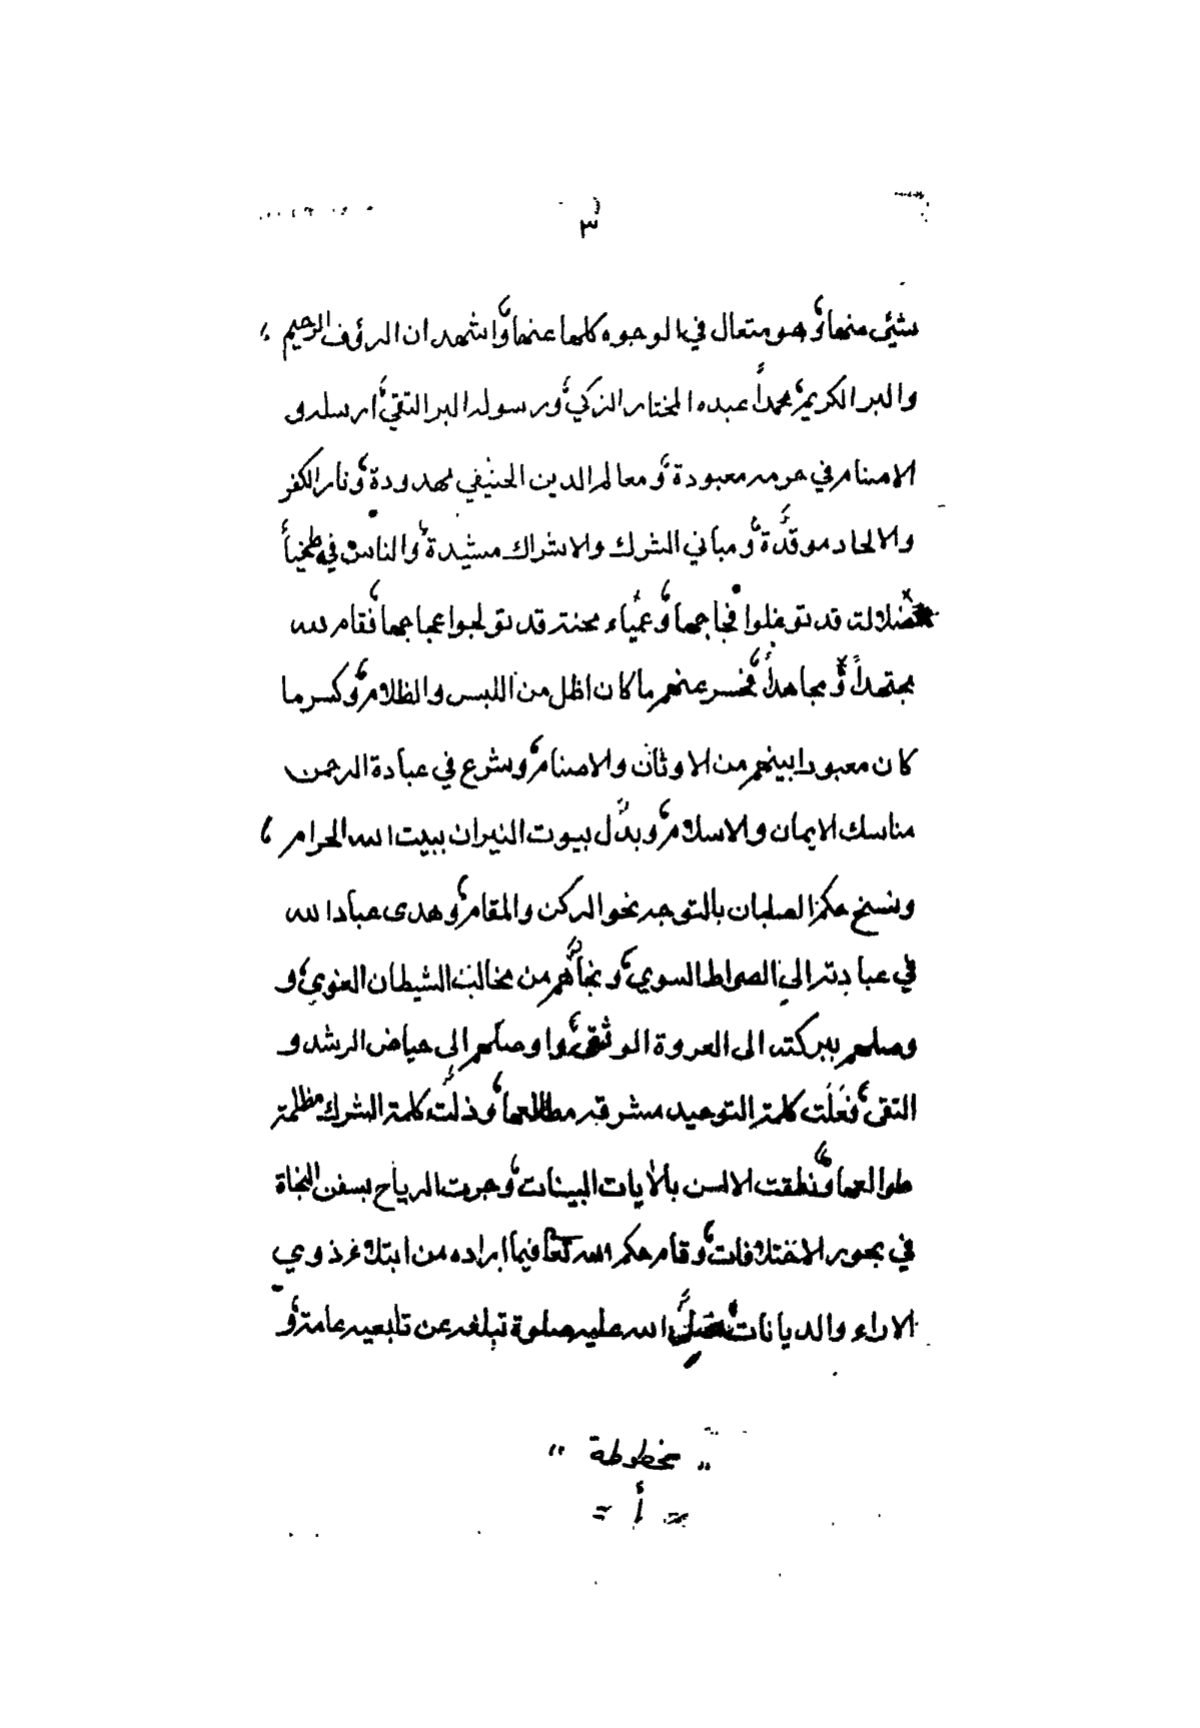 ٣
بشيئ منها، وهو متعال في الوجوه كلها عنها، واشهد ان الرؤف الرحيم،
والبر الكريم، محمداً عبده المختار الزكي، ورسوله البر التقي، ارسله و
الاصنام في حرمه معبودة، ومعالم الدين الحنيفي مهدودة، ونار الكفر
والالحاد موقدة، ومباني الشرك والاشراك مشيدة، والناس في طخيأ
ضلالة قد توغلوا فجاجها، وعمياء محنة قد تولجوا عجاجها، فقام لله
مجتهداً، ومجاهداً، فحسر عنهم ما كان اظل من اللبس والظلام، وكسر ما
كان معبودا بينهم من الاوثان والاصنام، وشرع في عبادة الرحمن
مناسك الايمان والاسلام، وبدّل بيوت النيران ببيت الله الحرام،
ونسخ حكم الصلبان بالتوجه نحو الركن والمقام، وهدى عباد الله
في عبادته الى الصراط السوي، ونجاهم من مخالب الشيطان الغوي، و
وصلهم ببركته الى العروة الوثقى، واوصلهم الى حياض الرشد و
التقى، فعَلَت كلمة التوحيد مشرقة مطالعها، وذلّت كلمة الشرك مظلمة
طوالعها، ونطقت الالسن بالايات البينات، وجرت الرياح بسفن النجاة
في بحور الاختلافات، وقام حكم الله تعا فيما اراده من ابتلاء ذوي
الاراء والديانات، فصلّى الله عليه صلوة تبلغه عن تابعيه عامة، و
" مخطوطة "
= أ =